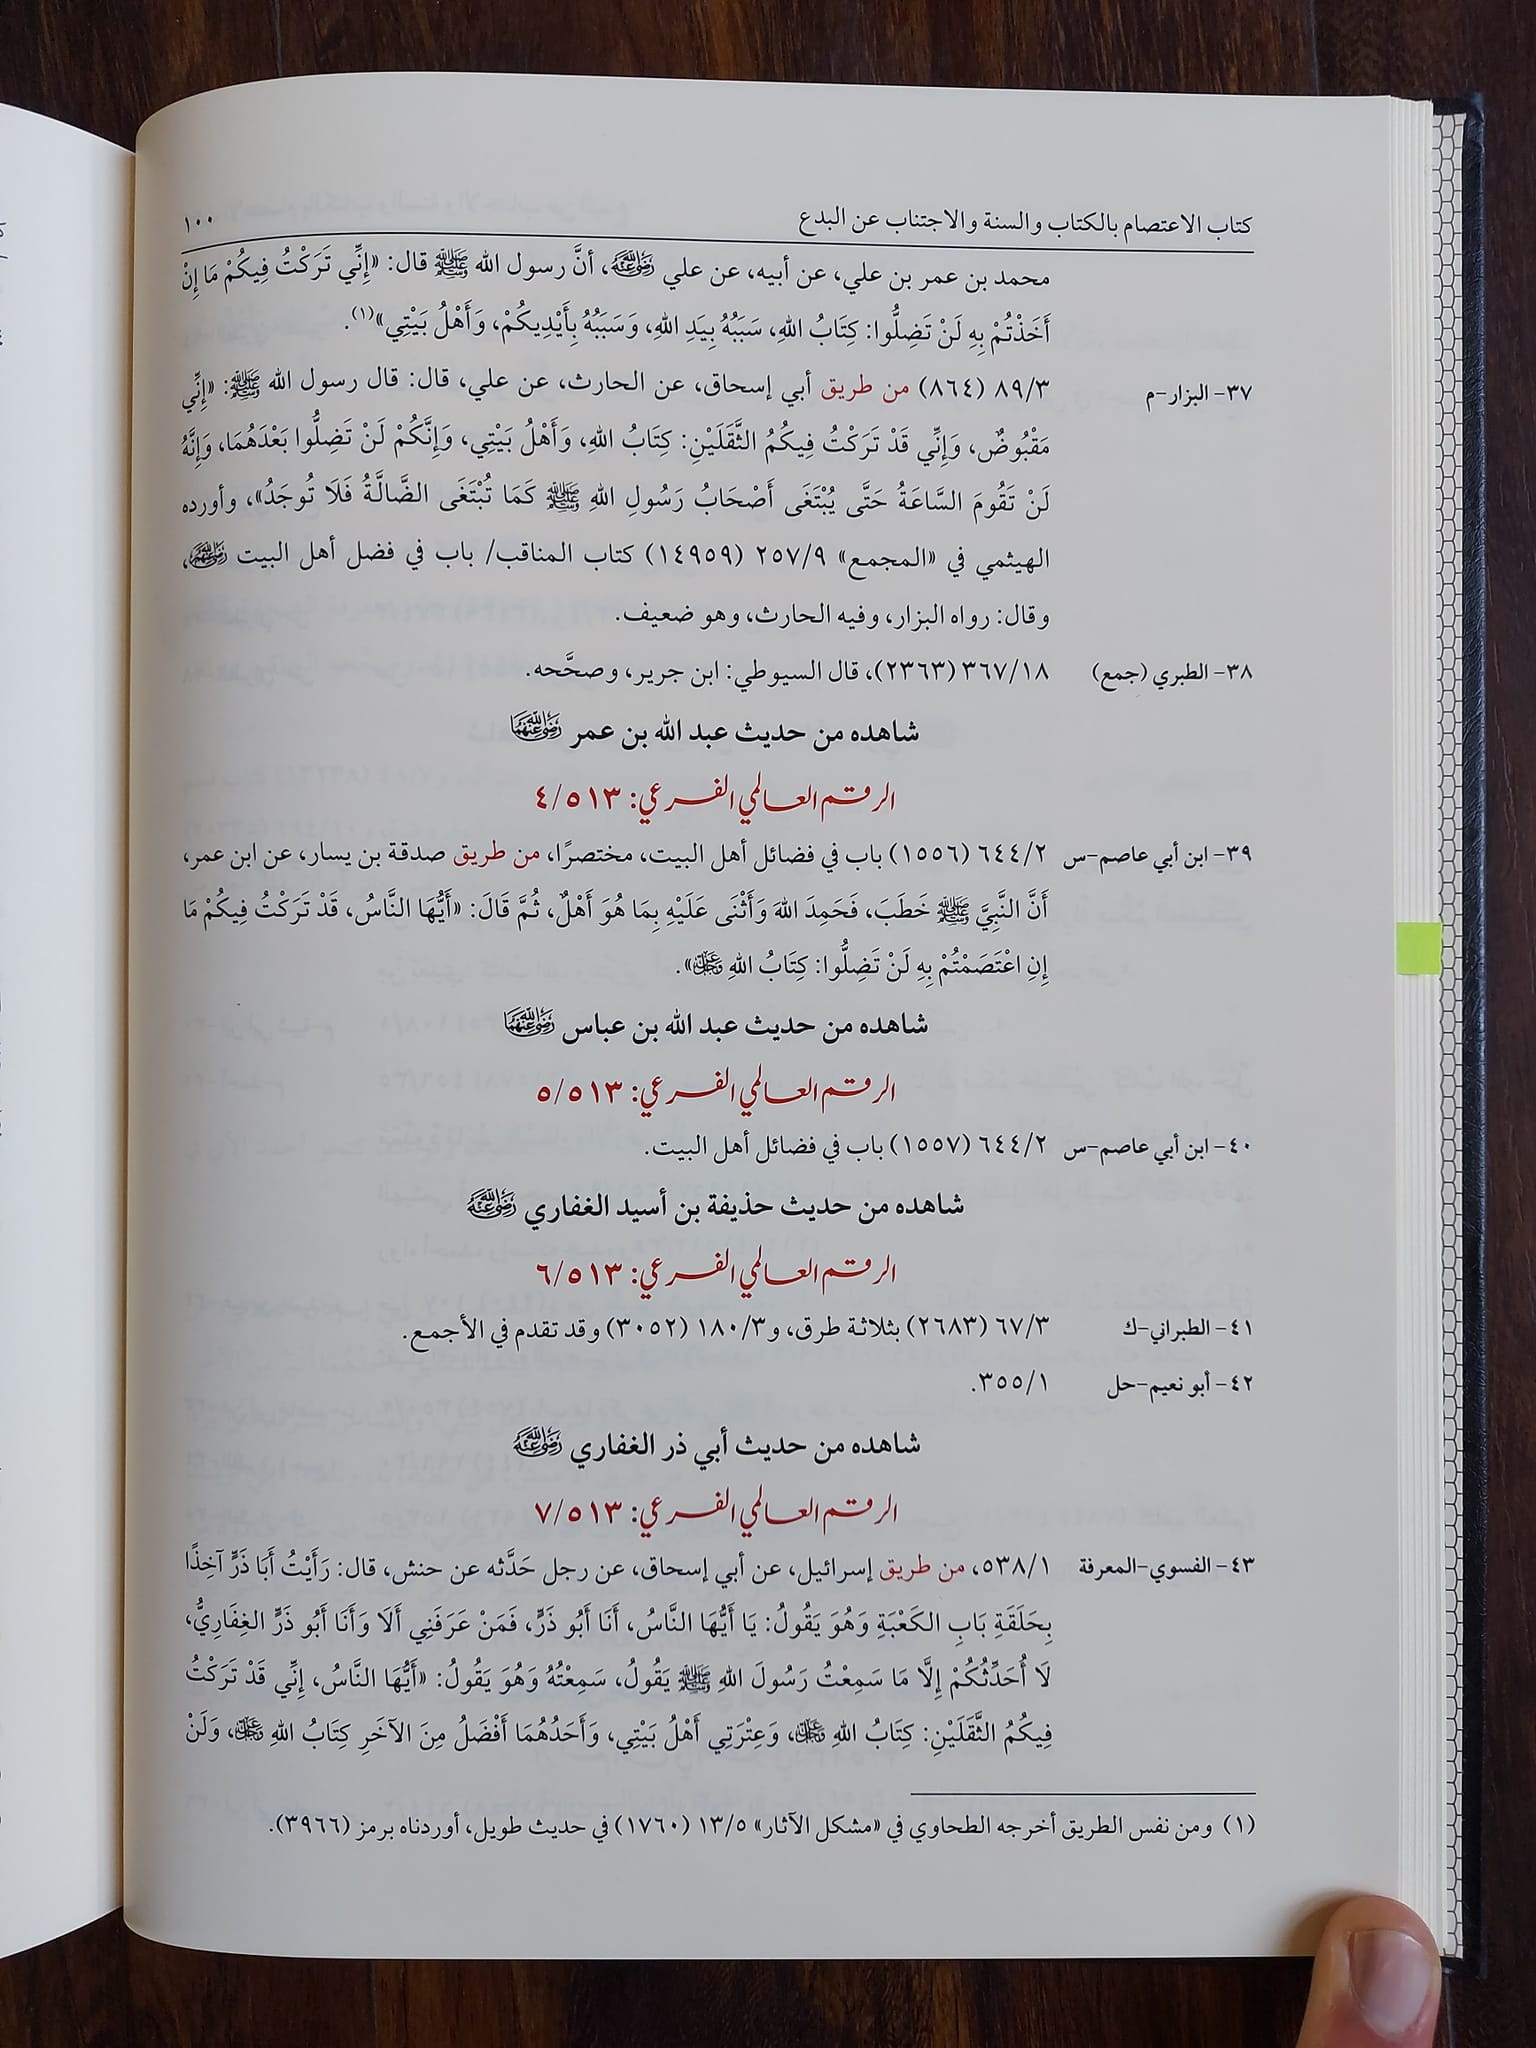 كتاب الاعتصام بالكتاب والسنة والاجتناب عن البدع ١٠٠
محمد بن عمر بن علي، عن أبيه، عن علي رضي الله عنه، أنَّ رسول الله ﷺ قال: «إِنِّي تَرَكْتُ فِيكُمْ مَا إِنْ
أَخَذْتُمْ بِهِ لَنْ تَضِلُّوا: كِتَابُ اللهِ، سَبَبُهُ بِيَدِ اللهِ، وَسَبَبُهُ بِأَيْدِيكُمْ، وَأَهْلُ بَيْتِي»(١).
٣٧- البزار-م ٨٩/٣ (٨٦٤) من طريق أبي إسحاق، عن الحارث، عن علي، قال: قال رسول الله ﷺ: «إِنِّي
مَقْبُوضٌ، وَإِنِّي قَدْ تَرَكْتُ فِيكُمُ الثَّقَلَيْنِ: كِتَابُ اللهِ، وَأَهْلُ بَيْتِي، وَإِنَّكُمْ لَنْ تَضِلُّوا بَعْدَهُمَا، وَإِنَّهُ
لَنْ تَقُومَ السَّاعَةُ حَتَّى يُبْتَغَى أَصْحَابُ رَسُولِ اللهِ ﷺ كَمَا تُبْتَغَى الضَّالَّةُ فَلَا تُوجَدُ»، وأورده
الهيثمي في «المجمع» ٢٥٧/٩ (١٤٩٥٩) كتاب المناقب/ باب في فضل أهل البيت رضي الله عنهم،
وقال: رواه البزار، وفيه الحارث، وهو ضعيف.
٣٨- الطبري (جمع) ٣٦٧/١٨ (٢٣٦٣)، قال السيوطي: ابن جرير، وصحَّحه.
شاهده من حديث عبد الله بن عمر رضي الله عنهما
الرقم العالمي الفرعي: ٤/٥١٣
٣٩- ابن أبي عاصم-س ٦٤٤/٢ (١٥٥٦) باب في فضائل أهل البيت، مختصرًا، من طريق صدقة بن يسار، عن ابن عمر،
أَنَّ النَّبِيَّ ﷺ خَطَبَ، فَحَمِدَ اللهَ وَأَثْنَى عَلَيْهِ بِمَا هُوَ أَهْلٌ، ثُمَّ قَالَ: «أَيُّهَا النَّاسُ، قَدْ تَرَكْتُ فِيكُمْ مَا
إِنِ اعْتَصَمْتُمْ بِهِ لَنْ تَضِلُّوا: كِتَابُ اللهِ عز وجل».
شاهده من حديث عبد الله بن عباس رضي الله عنهما
الرقم العالمي الفرعي: ٥/٥١٣
٤٠- ابن أبي عاصم-س ٦٤٤/٢ (١٥٥٧) باب في فضائل أهل البيت.
شاهده من حديث حذيفة بن أسيد الغفاري رضي الله عنه
الرقم العالمي الفرعي: ٦/٥١٣
٤١- الطبراني-ك ٦٧/٣ (٢٦٨٣) بثلاثة طرق، و١٨٠/٣ (٣٠٥٢) وقد تقدم في الأجمع.
٤٢- أبو نعيم-حل ٣٥٥/١.
شاهده من حديث أبي ذر الغفاري رضي الله عنه
الرقم العالمي الفرعي: ٧/٥١٣
٤٣- الفسوي-المعرفة ٥٣٨/١، من طريق إسرائيل، عن أبي إسحاق، عن رجل حَدَّثه عن حنش، قال: رَأَيْتُ أَبَا ذَرٍّ آخِذًا
بِحَلَقَةِ بَابِ الكَعْبَةِ وَهُوَ يَقُولُ: يَا أَيُّهَا النَّاسُ، أَنَا أَبُو ذَرٍّ، فَمَنْ عَرَفَنِي أَلَا وَأَنَا أَبُو ذَرٍّ الغِفَارِيُّ،
لَا أُحَدِّثُكُمْ إِلَّا مَا سَمِعْتُ رَسُولَ اللهِ ﷺ يَقُولُ، سَمِعْتُهُ وَهُوَ يَقُولُ: «أَيُّهَا النَّاسُ، إِنِّي قَدْ تَرَكْتُ
فِيكُمُ الثَّقَلَيْنِ: كِتَابُ اللهِ عز وجل، وَعِتْرَتِي أَهْلُ بَيْتِي، وَأَحَدُهُمَا أَفْضَلُ مِنَ الآخَرِ كِتَابُ اللهِ عز وجل، وَلَنْ
(١) ومن نفس الطريق أخرجه الطحاوي في «مشكل الآثار» ١٣/٥ (١٧٦٠) في حديث طويل، أوردناه برمز (٣٩٦٦).